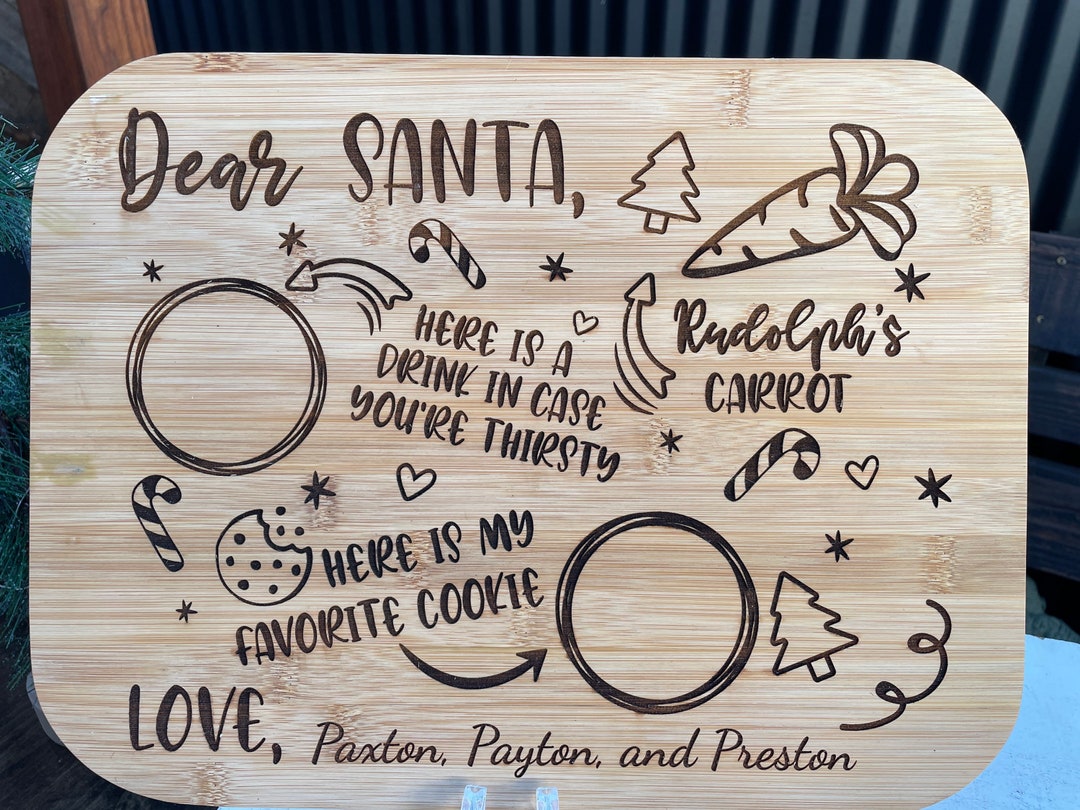 Dear SANTA,
HERE IS A
DRINK IN CASE
YOU'RE THIRSTY
Rudolph's
CARROT
HERE IS MY
FAVORITE COOKIE
LOVE, Paxton, Payton, and Preston